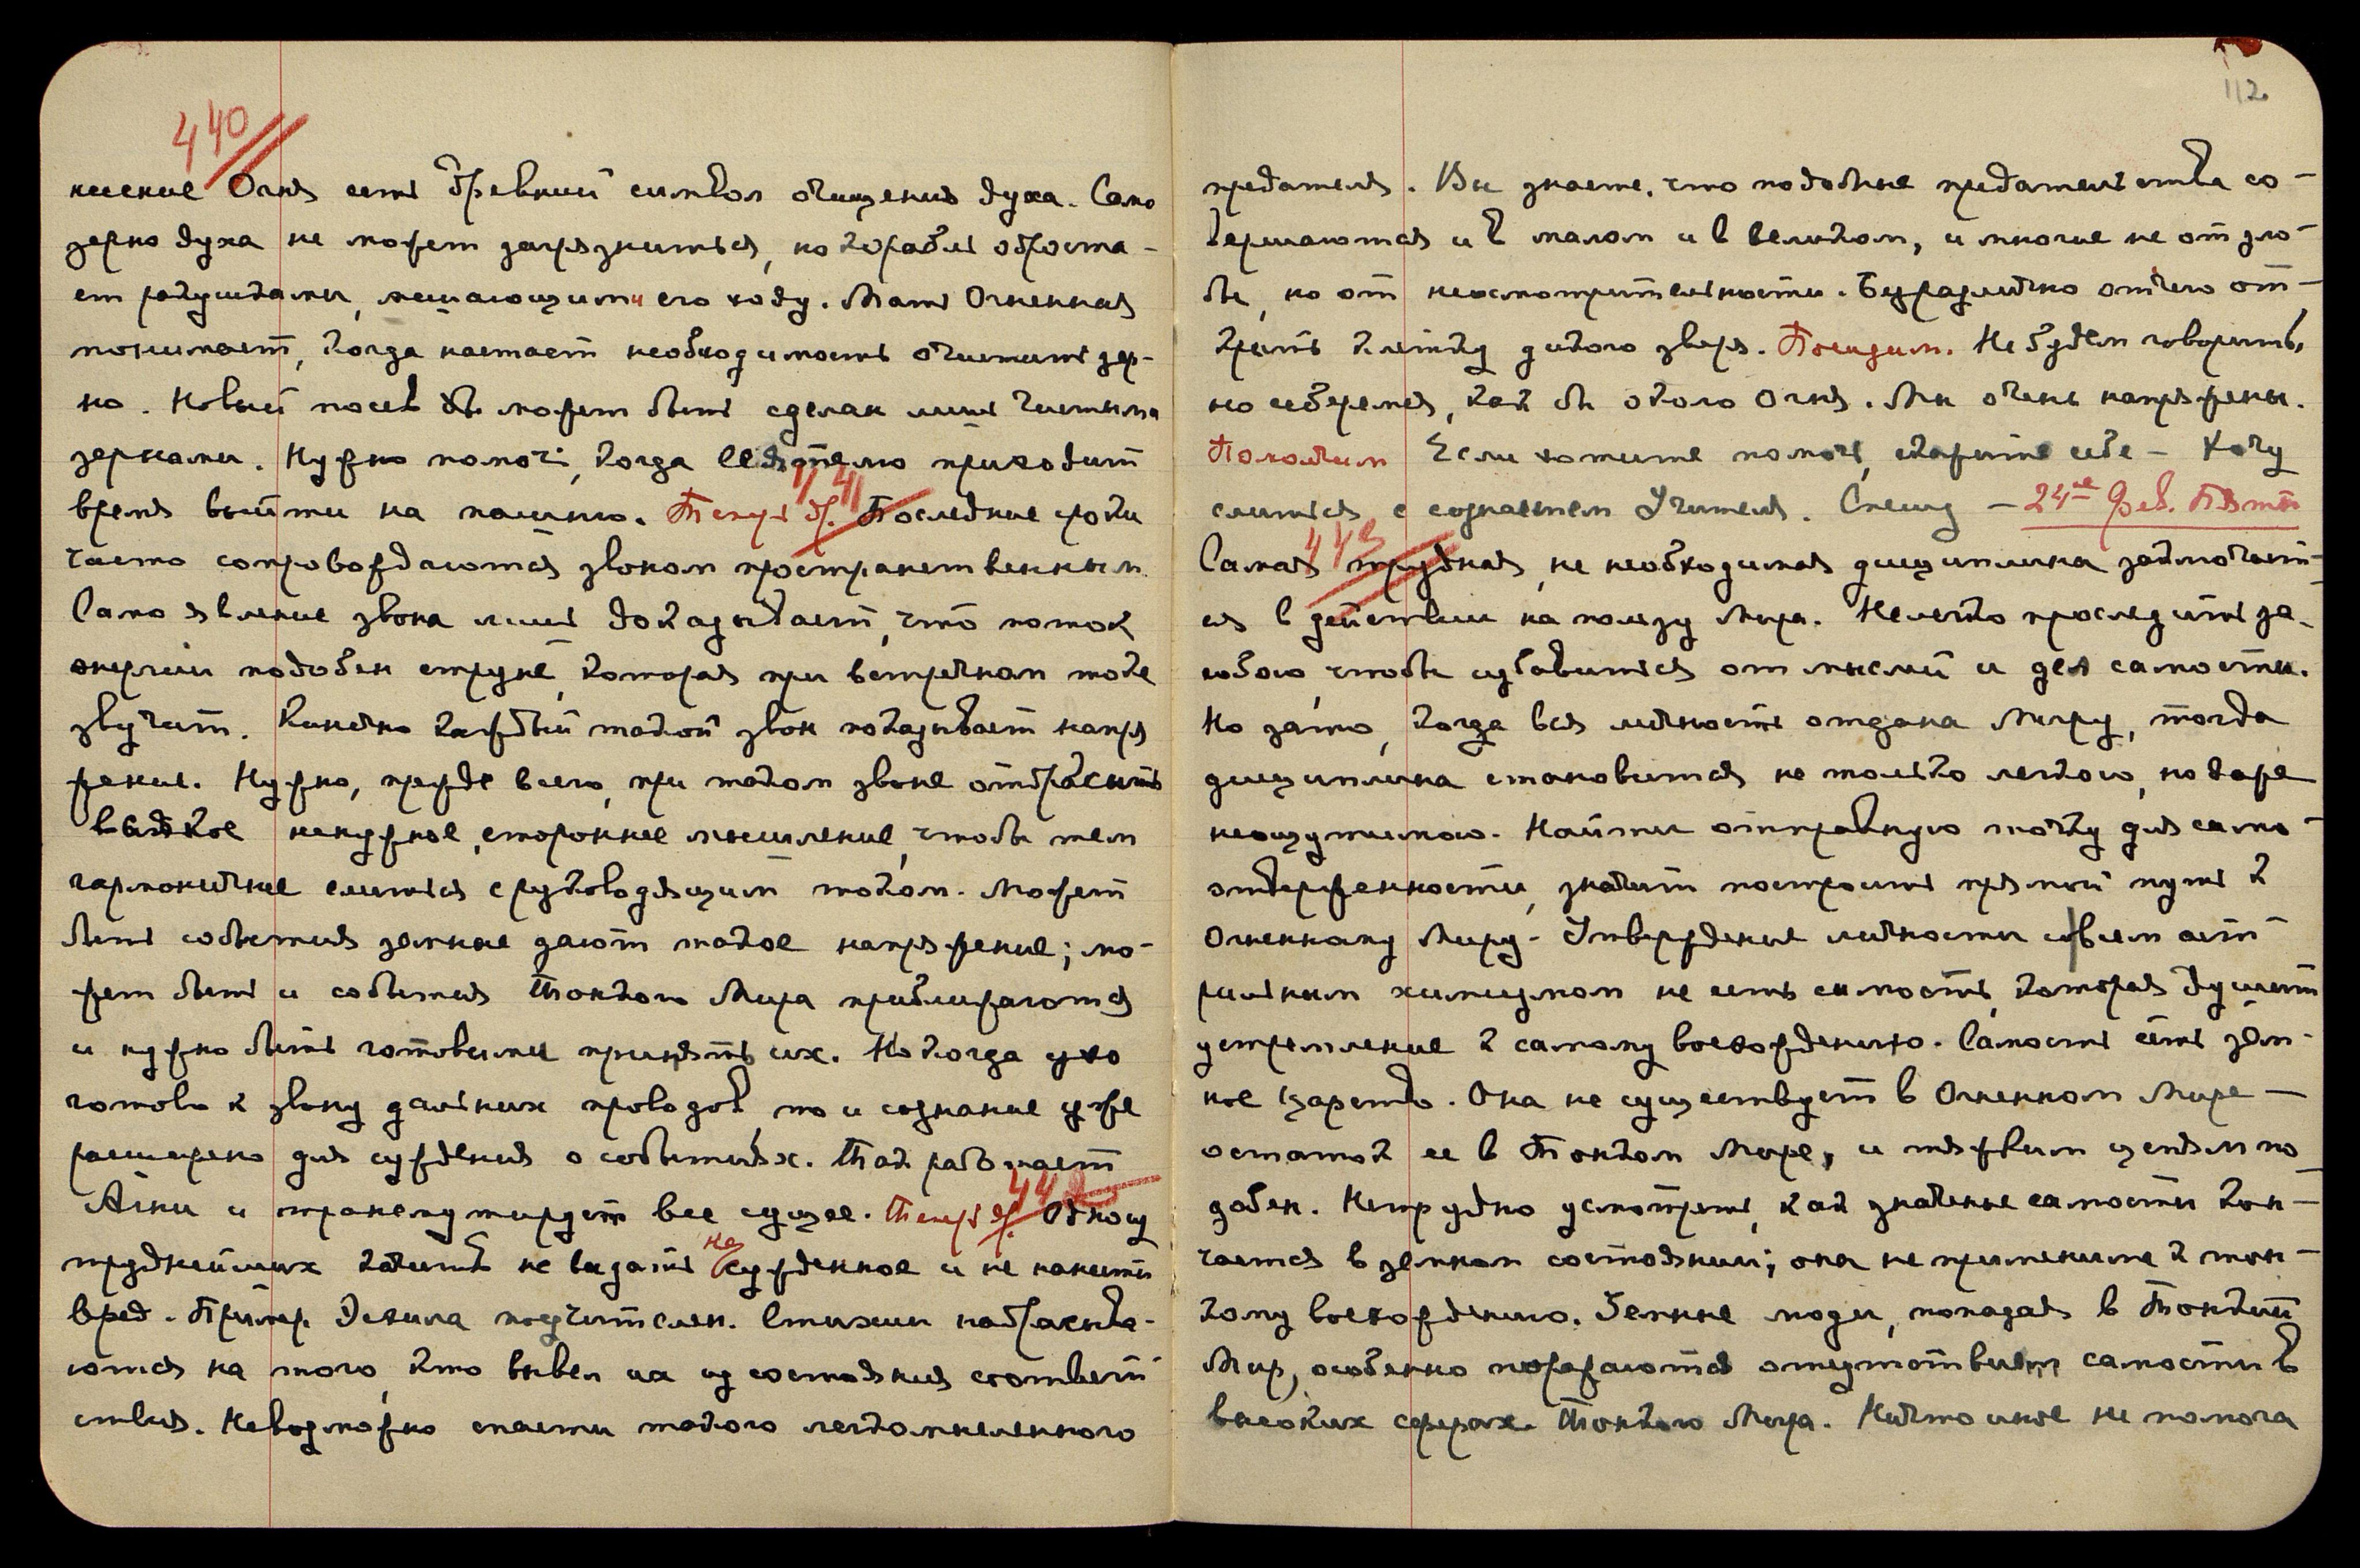 440
нисение Огня есть древний символ очищения духа. Само
зерно духа не может загрязниться, но корабль оброста-
ет ракушками, мешающими его ходу. Мать Огненная
понимает, когда настает необходимость очистить зер-
но. Новый посев может быть сделан лишь чистыми
зернами. Нужно помочь, когда приходит
время выйти на пашню. Теперь др. Последние сроки
441
часто сопровождаются звоном пространственным.
Само явление звона лишь доказывает, что поток
энергии подобен струне, которая при встречном токе
звучит. Конечно каждый такой звон показывает напря
жение. Нужно, прежде всего, при таком звоне отбросить
всякое ненужное, стороннее мышление, чтобы тем
гармоничнее слиться с руководящим током. Может
быть события земные дают такое напряжение; мо-
жет быть и события Тонкого Мира приближаются
и нужно быть готовыми принять их. Но когда ухо
готово к звону дальних проводов, то и сознание уже
расширено для суждения о событиях. Так работает
Агни и трансмутирует все сущее. Теперь др. Одно из
442
труднейших качеств не выдать не
сужденное и не нанести
вред. Пример поучителен. Стихии набрасыва-
ются на того, кто вывел их из состояния соответ-
ствия. Невозможно спасти такого легкомысленного
112
предателя. Вы знаете, что подобные предательства со-
вершаются и в малом и в великом, и многие не от зло-
бы, но от неосмотрительности. Безразлично отчего от-
крыть клетку дикого зверя. Посидим. Не будем говорить,
но соберемся, как бы около Огня. Мы очень напряжены.
Помолчим Если хотите помочь, скажите себе – хочу
слиться с сознанием Учителя. Спешу – 24ое Фев. Пятн
443
Самая трудная, не необходимая дисциплина заключает-
ся в действии на пользу Мира. Нелегко проследить за
собою, чтобы избавиться от мыслей и дел самости.
Но зато, когда вся личность отдана Миру, тогда
дисциплина становится не только легкою, но даже
неощутимою. Найти отправную точку для само-
отверженности, значит построить прямой путь к
Огненному Миру. Утверждение личности со всем аст
ральным химизмом не есть самость, которая душит
устремление к самому восхождению. Самость есть зем-
ное царство. Она не существует в Огненном Мире –
остаток ее в Тонком Мире, и тяжким цепям по-
добен. Нетрудно усмотреть, как значение самости кон-
чается в земном состоянии; она не применима к тон-
кому восхождению. Земные люди, попадая в Тонкий
Мир, особенно поражаются отсутствием самости в
высоких сферах Тонкого Мира. Ничто иное не помога